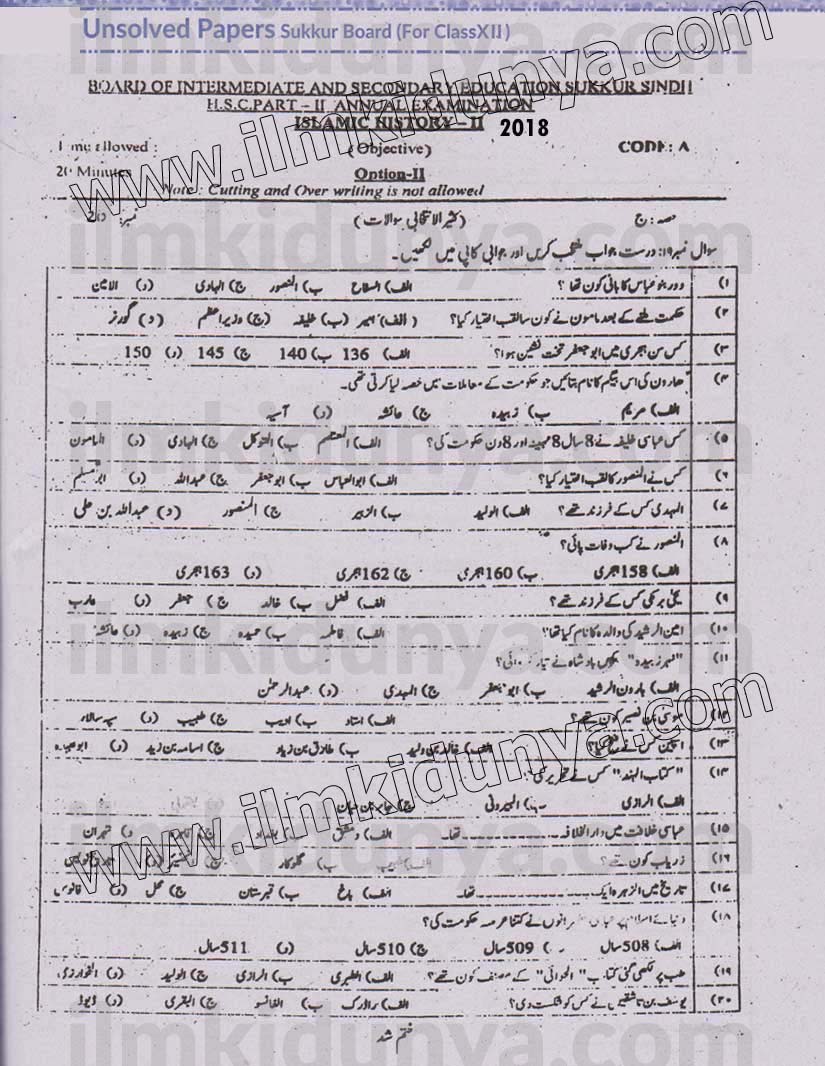 Unsolved Papers Sukkur Board (For ClassXII)
BOARD OF INTERMEDIATE AND SECONDARY EDUCATION SUKKUR SINDH
H.S.C.PART – II ANNUAL EXAMINATION
ISLAMIC HISTORY – II 2018
allowed : (Objective) CODE: A
20 Minutes Option-II
Note: Cutting and Over writing is not allowed
حصہ : ج (کثیر الانتخابی سوالات) نمبر: 20
سوال نمبر ۱۹: درست جواب منتخب کریں اور جوابی کاپی میں لکھیں۔
۱) دور بنو عباس کا بانی کون تھا؟ الف) السفاح ب) المنصور ج) الہادی د) الامین
۲) حکومت ملنے کے بعد مامون نے کون سا لقب اختیار کیا؟ (الف) امیر (ب) خلیفہ (ج) وزیر اعظم (د) گورنر
۳) کس سن ہجری میں ابو جعفر تخت نشین ہوا؟ الف) 136 ب) 140 ج) 145 د) 150
۴) ھارون کی اس بیگم کا نام بتائیں جو حکومت کے معاملات میں حصہ لیا کرتی تھی۔
الف) مریم ب) زبیدہ ج) عائشہ د) آسیہ
۵) کس عباسی خلیفہ نے 8 سال 8 مہینہ اور 8 دن حکومت کی؟ الف) المعتصم ب) المتوکل ج) الہادی د) المامون
۶) کس نے المنصور کا لقب اختیار کیا؟ الف) ابو العباس ب) ابو جعفر ج) عبداللہ د) ابو مسلم
۷) المہدی کس کے فرزند تھے؟ الف) الولید ب) الزبیر ج) المنصور د) عبداللہ بن علی
۸) المنصور نے کب وفات پائی؟
الف) 158 ہجری ب) 160 ہجری ج) 162 ہجری د) 163 ہجری
۹) یحیٰ برمکی کس کے فرزند تھے؟ الف) فضل ب) خالد ج) جعفر د)
۱۰) امین الرشید کی والدہ کا نام کیا تھا؟ الف) فاطمہ ب) حمیدہ ج) زبیدہ د) عائشہ
۱۱) "نہر زبیدہ" کس بادشاہ نے تیار کروائی؟
الف) ہارون الرشید ب) ابو جعفر ج) المہدی د) عبدالرحمٰن
۱۲) موسیٰ بن نصیر کون تھے؟ الف) استاد ب) ادیب ج) طبیب د) سپہ سالار
۱۳) الف) خالد بن ولید ب) طارق بن زیاد ج) اسامہ بن زید د) ابو عبیدہ
۱۴) "کتاب الہند" کس نے تحریر کی؟
الف) الرازی ب) البیرونی ج) جابر بن حیان
۱۵) عباسی خلافت میں دارالخلافہ ------------ تھا۔ الف) دمشق ب) بغداد ج) د) تہران
۱۶) زریاب کون تھے؟ الف) طبیب ب) گلوکار
۱۷) تاریخ میں الزہرہ ایک ------------ تھا۔ الف) باغ ب) قبرستان ج) محل د) فانوس
۱۸) دنیائے اسلام پر عباسی حکمرانوں نے کتنا عرصہ حکومت کی؟
الف) 508 سال ب) 509 سال ج) 510 سال د) 511 سال
۱۹) طب پر لکھی گئی کتاب "الحوائی" کے مصنف کون تھے؟ الف) الطبری ب) الرازی ج) الولید د) الخوارزمی
۲۰) یوسف بن تاشفین نے کس کو شکست دی؟ الف) راڈرک ب) الفانسو ج) البقری د) ڈیوڈ
ختم شد
www.ilmkidunya.com
www.ilmkidunya.com
ilmkidunya.com